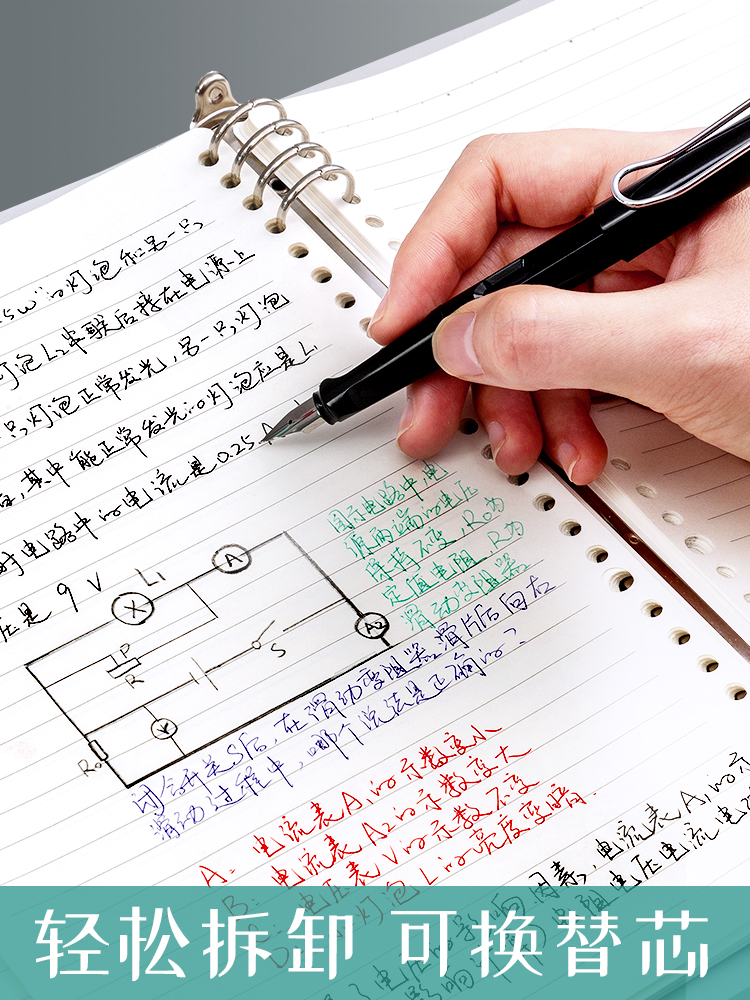 5W"的灯泡和另一只
灯泡L₂串联后接在电源上
只灯泡正常发光,另一只灯泡
其中能正常发光的灯泡应是L₁
时电路中的电流是0.25A
压是9V
L₁
A
X
P
R
S
A2
V
R₀
图所示电路中,电
源两端的电压
保持不变,R₀为
定值电阻,R为
滑动变阻器
闭合开关S后,在滑动变阻器滑片P向右
滑动过程中,哪个说法是正确的?
A. 电流表A₁的示数变小
B. 电流表A2的示数变大
电压表V的示数不变
灯泡L的亮度变暗.
因素,电流表A₁的示
轻松拆卸 可换替芯